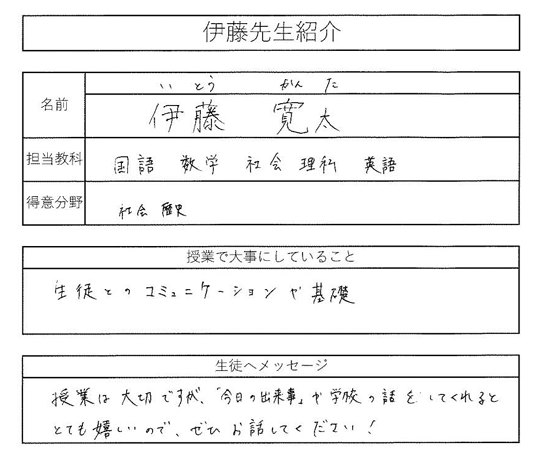 伊藤先生紹介
いとう かんた
名前
伊藤 寛太
担当教科 国語 数学 社会 理科 英語
得意分野 社会 歴史
授業で大事にしていること
生徒とのコミュニケーションや基礎
生徒へメッセージ
授業は大切ですが、「今日の出来事」や学校の話をしてくれると
とても嬉しいので、ぜひお話してください!